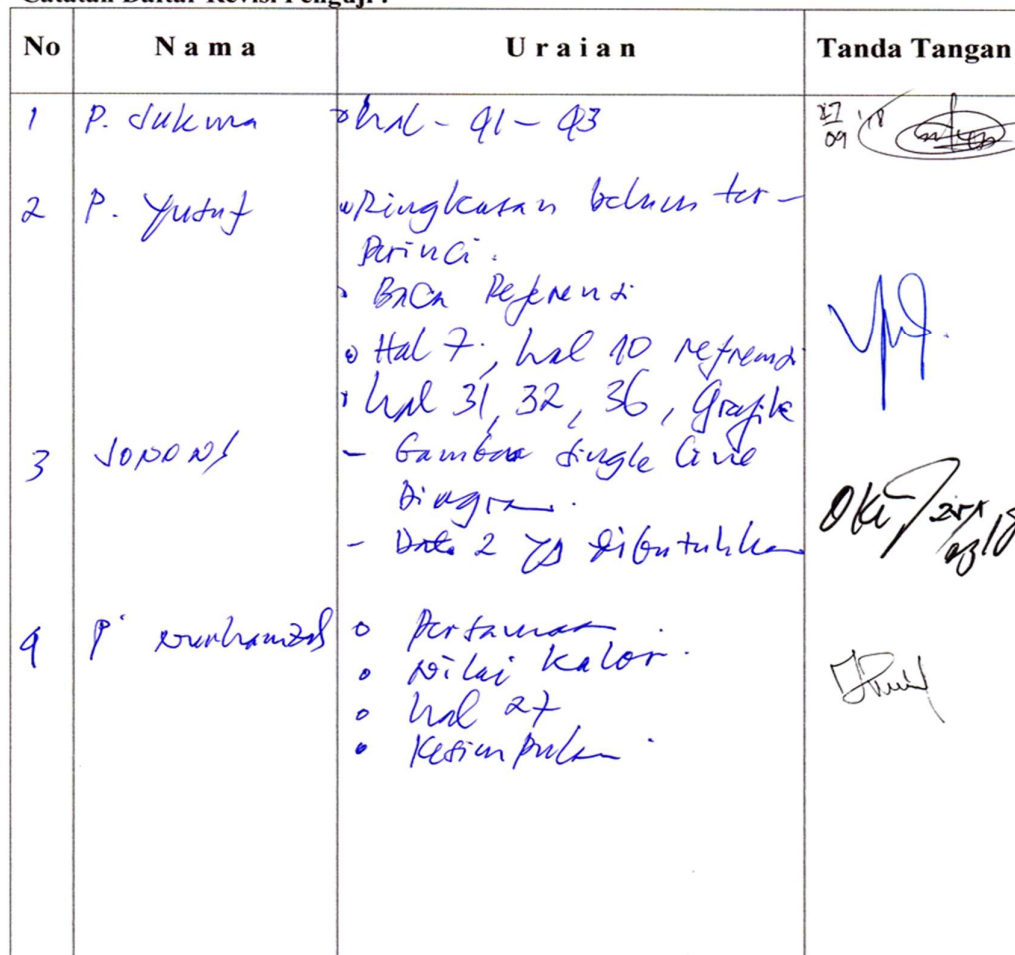 Catatan Daftar Revisi Penguji :
No Nama Uraian Tanda Tangan
1 P. Sukma hal - 41 - 43
27/09
2 P. Yusuf Ringkasan belum ter-
Perinci.
Baca Referensi
Hal 7, hal 10 refrensi
hal 31, 32, 36, Grafik
3 - Gambar single line
Diagram.
- Data2 yg dibutuhkan
Oke
4 P. Nurhamzah Persamaan
Nilai Kalor.
hal 27
Kesimpulan